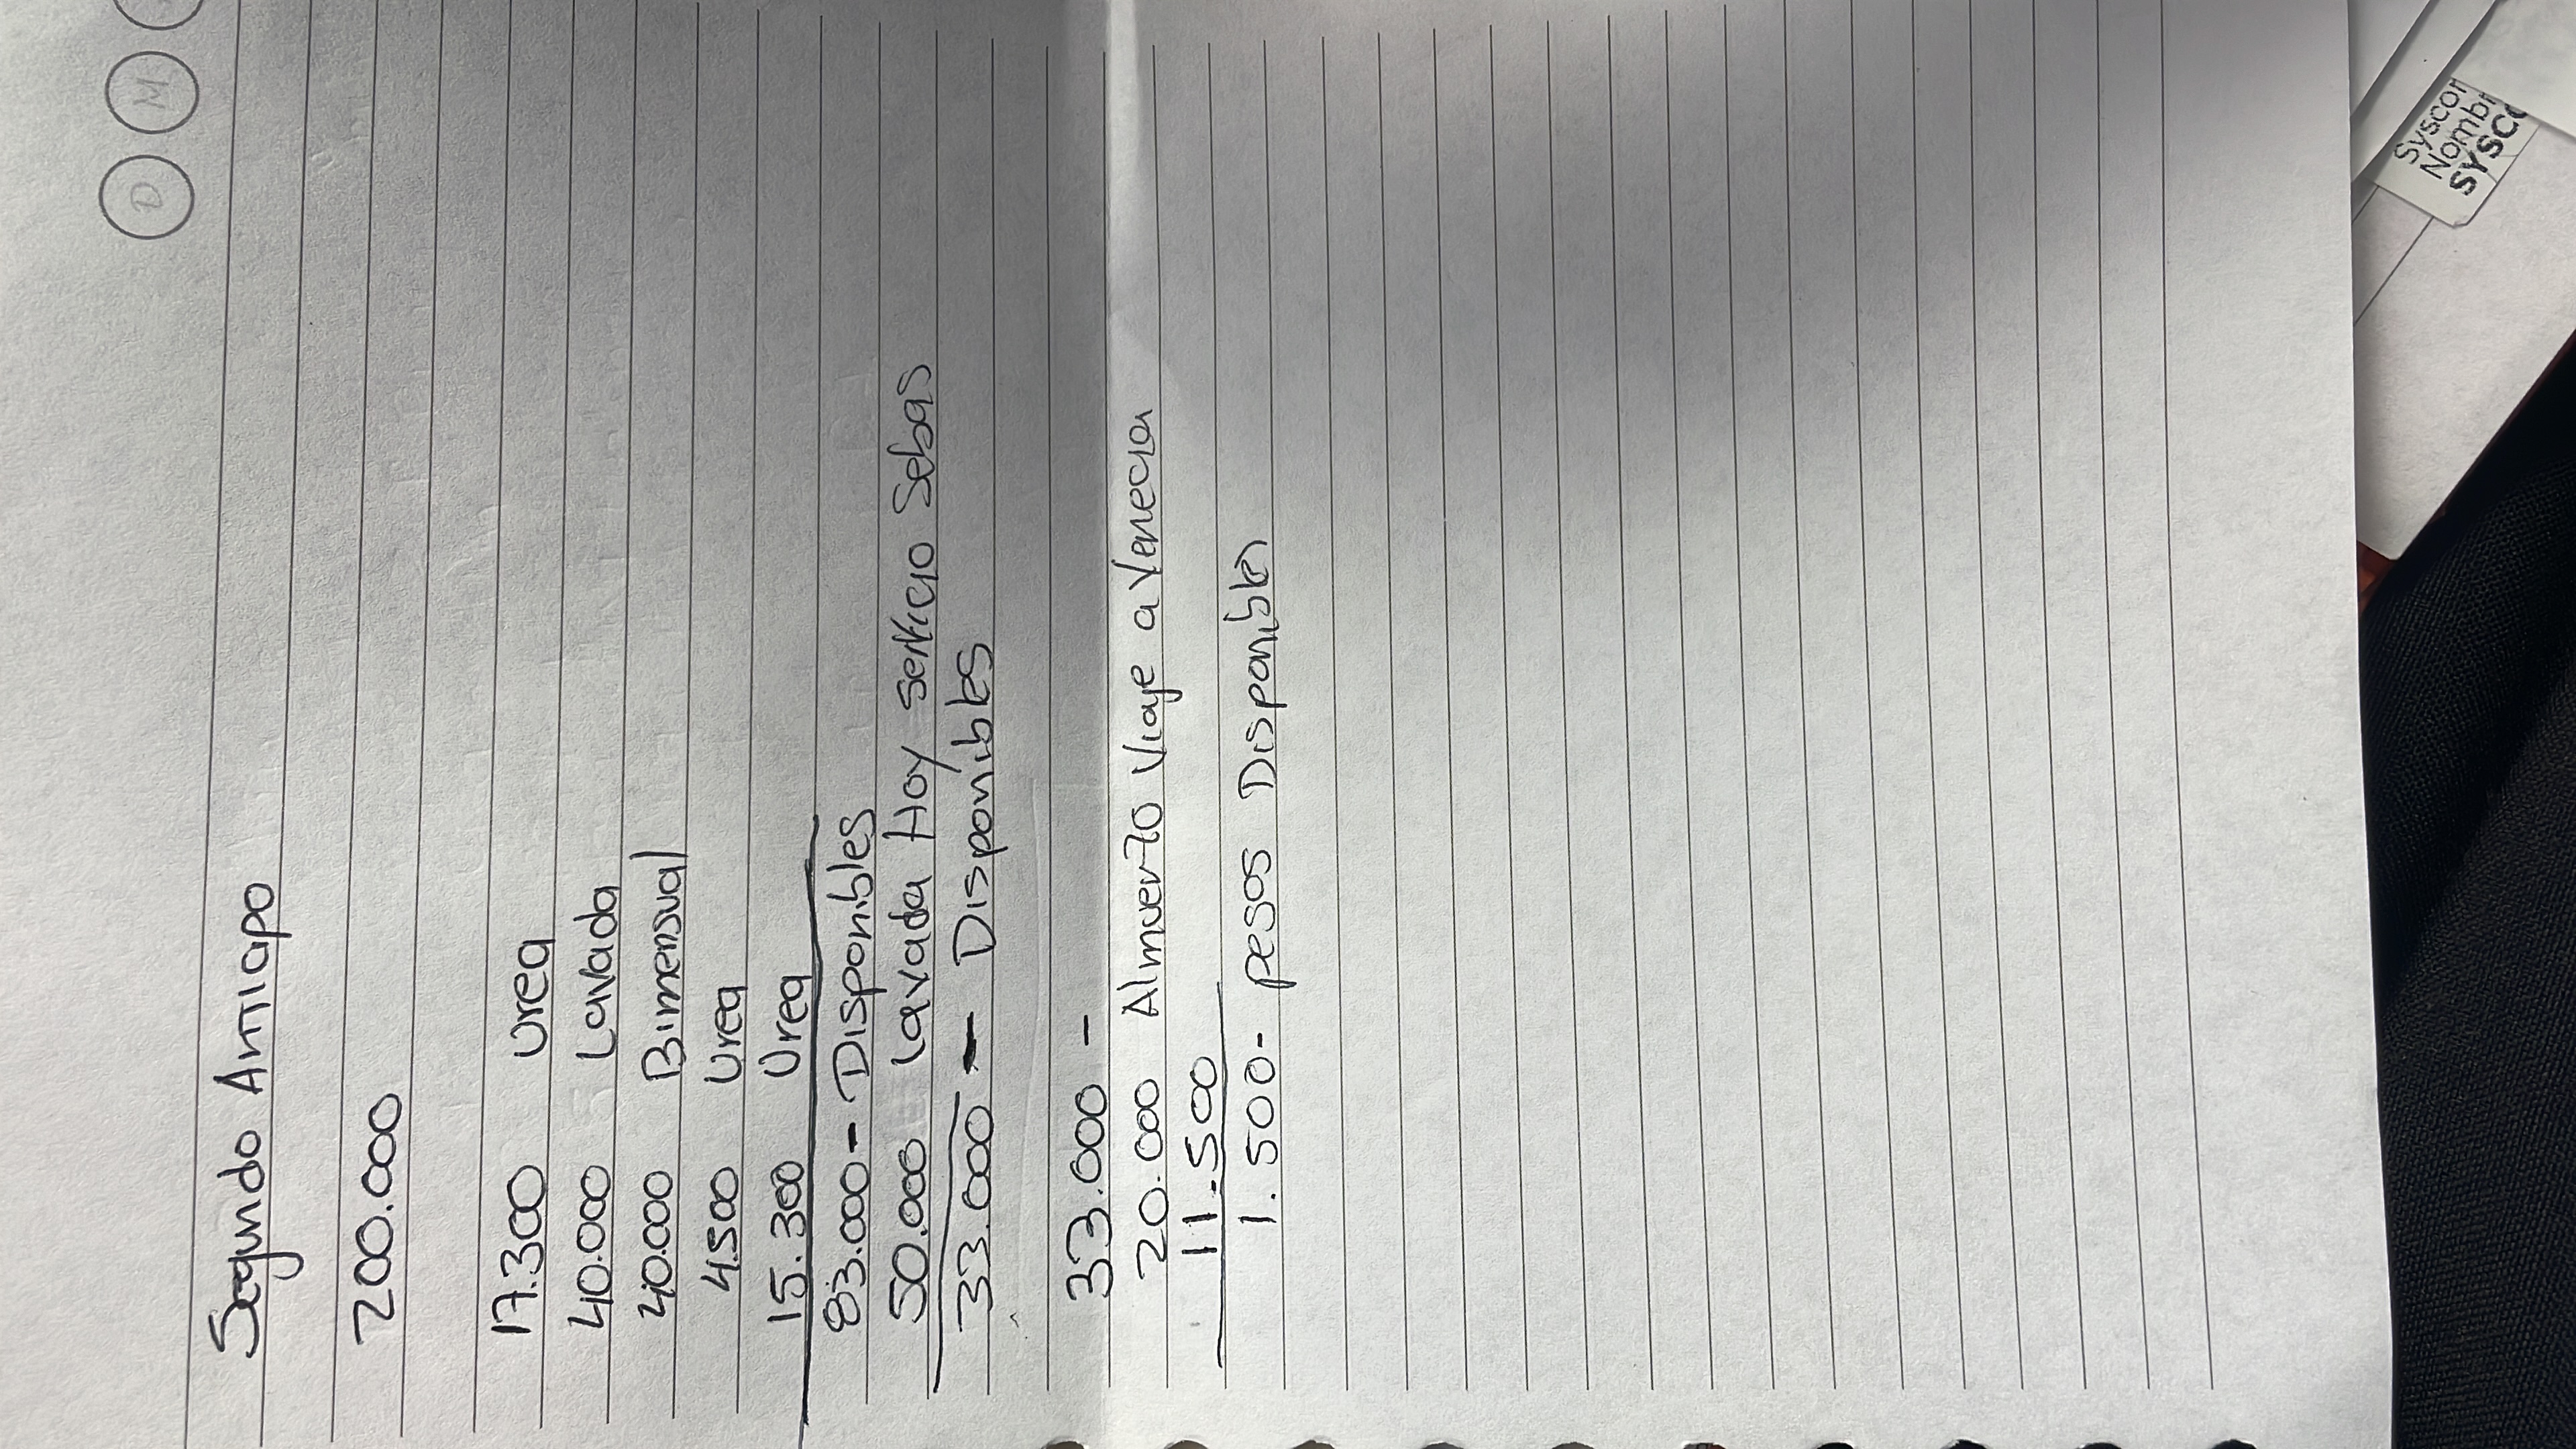 D M
Segundo Anticipo
200.000
17.300 Urea
40.000 Lavada
40.000 Bimensual
4.500 Urea
15.300 Urea
83.000 - Disponibles
50.000 Lavada Hoy servicio Sebas
33.000 - Disponibles
33.000 -
20.000 Almuerzo Viaje a Venecia
11.500
1.500 - pesos Disponibles
Syscor
Nombr
SYSCO